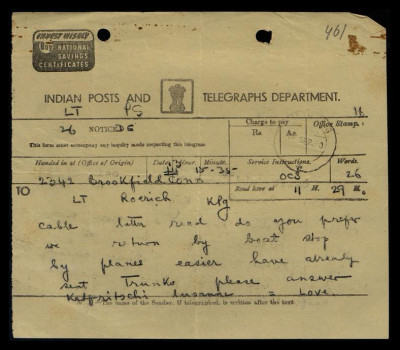 INVEST WISELY
Buy NATIONAL
SAVINGS
CERTIFICATES
461
INDIAN POSTS AND TELEGRAPHS DEPARTMENT.
LT PS 16
26 NOTICE DE
Charge to pay
Rs. As.
Office Stamp.
This form must accompany any inquiry made respecting this telegram
Handed in at (Office of Origin) Date Hour Minute. Service Instructions. Words.
2342 Brookfield Conn 13 15-35- OCS 26
TO
Recd here at 11 H. 29 M.
LT Roerich Kpg
cable letter read do you prefer
we return by boat stop
by planes easier have already
sent Trunks please answer
Susanne = Love.
The name of the Sender, if telegraphed, is written after the text